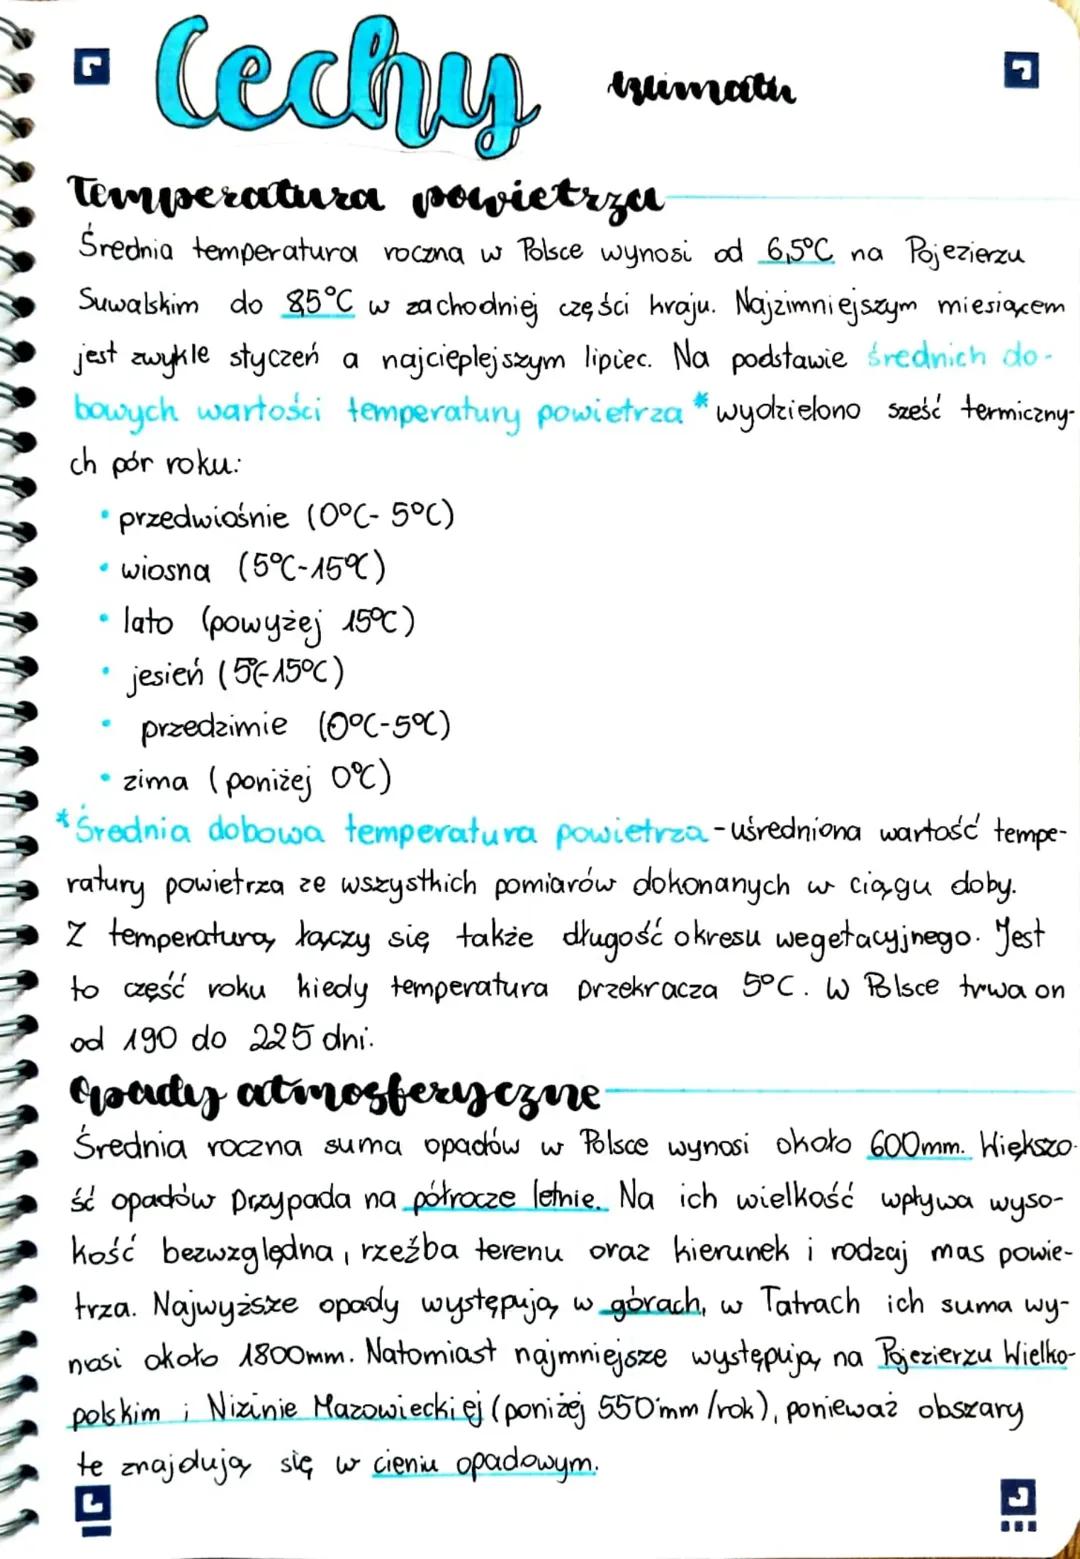 Cechy klimatu
Temperatura powietrza
Średnia temperatura roczna w Polsce wynosi od 6,5°C na Pojezierzu
Suwalskim do 8,5°C w zachodniej części kraju. Najzimniejszym miesiącem
jest zwykle styczeń a najcieplejszym lipiec. Na podstawie średnich do-
bowych wartości temperatury powietrza * wydzielono sześć termiczny-
ch pór roku:
• przedwiośnie (0°C- 5°C)
• wiosna (5°C-15°C)
• lato (powyżej 15°C)
• jesień (5°C-15°C)
• przedzimie (0°C-5°C)
• zima (poniżej 0°C)
*Średnia dobowa temperatura powietrza - uśredniona wartość tempe-
ratury powietrza ze wszystkich pomiarów dokonanych w ciągu doby.
Z temperaturą łączy się także długość okresu wegetacyjnego. Jest
to część roku kiedy temperatura przekracza 5°C. W Polsce trwa on
od 190 do 225 dni.
Opady atmosferyczne
Średnia roczna suma opadów w Polsce wynosi około 600mm. Większo-
ść opadów przypada na półrocze letnie. Na ich wielkość wpływa wyso-
kość bezwzględna, rzeźba terenu oraz kierunek i rodzaj mas powie-
trza. Najwyższe opady występują w górach, w Tatrach ich suma wy-
nosi około 1800mm. Natomiast najmniejsze występują na Pojezierzu Wielko-
polskim i Nizinie Mazowieckiej (poniżej 550 mm/rok), ponieważ obszary
te znajdują się w cieniu opadowym.